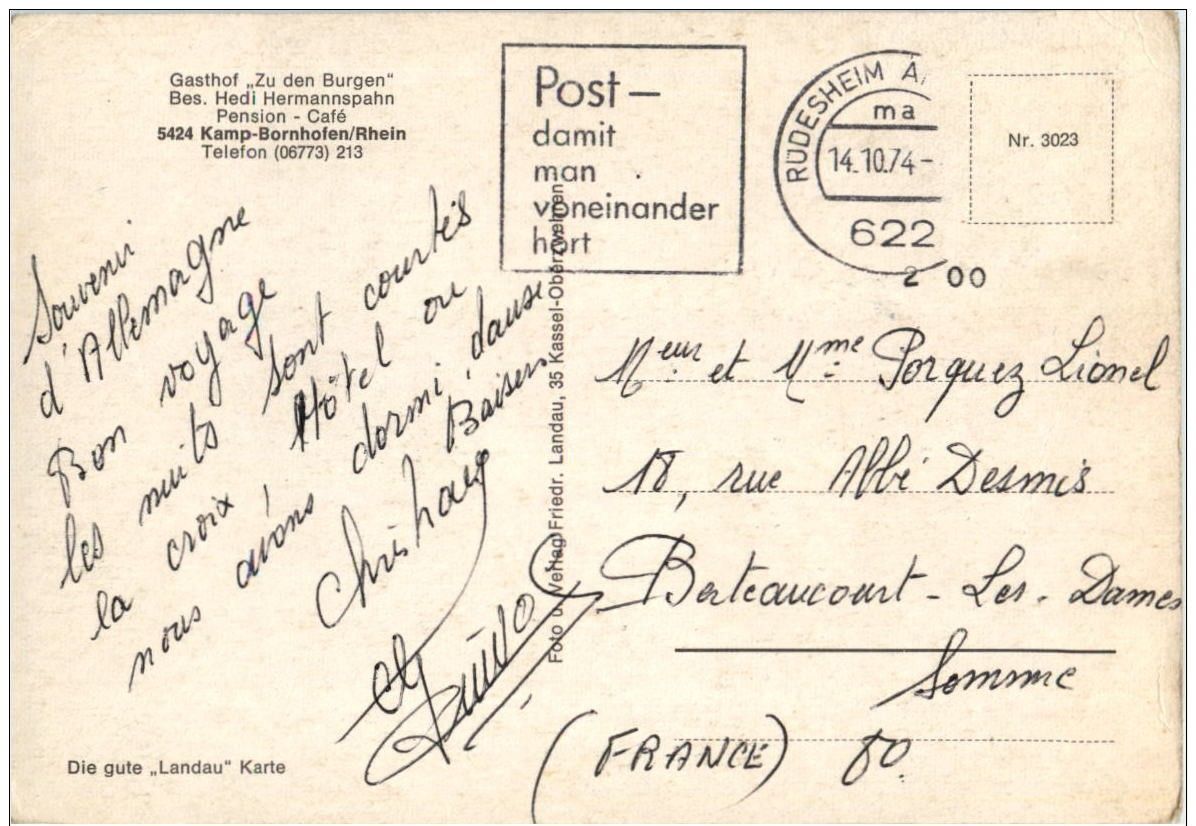 Gasthof „Zu den Burgen“
Bes. Hedi Hermannspahn
Pension - Café
5424 Kamp-Bornhofen/Rhein
Telefon (06773) 213
Post –
damit
man
voneinander
hört
RÜDESHEIM A
ma
14.10.74-
622
2 00
Nr. 3023
Souvenir
d'Allemagne
Bon voyage
les nuits sont courtes
la croix, Hôtel ou
nous avons dormi, danse
Baisers
Christiane
et
Foto u. Verlag Friedr. Landau, 35 Kassel-Oberzwehren
Meur et Mme Porquez Lionel
18, rue Abbé Desmis
Berteaucourt - Les - Dames
Somme
(FRANCE) 80
Die gute „Landau“ Karte